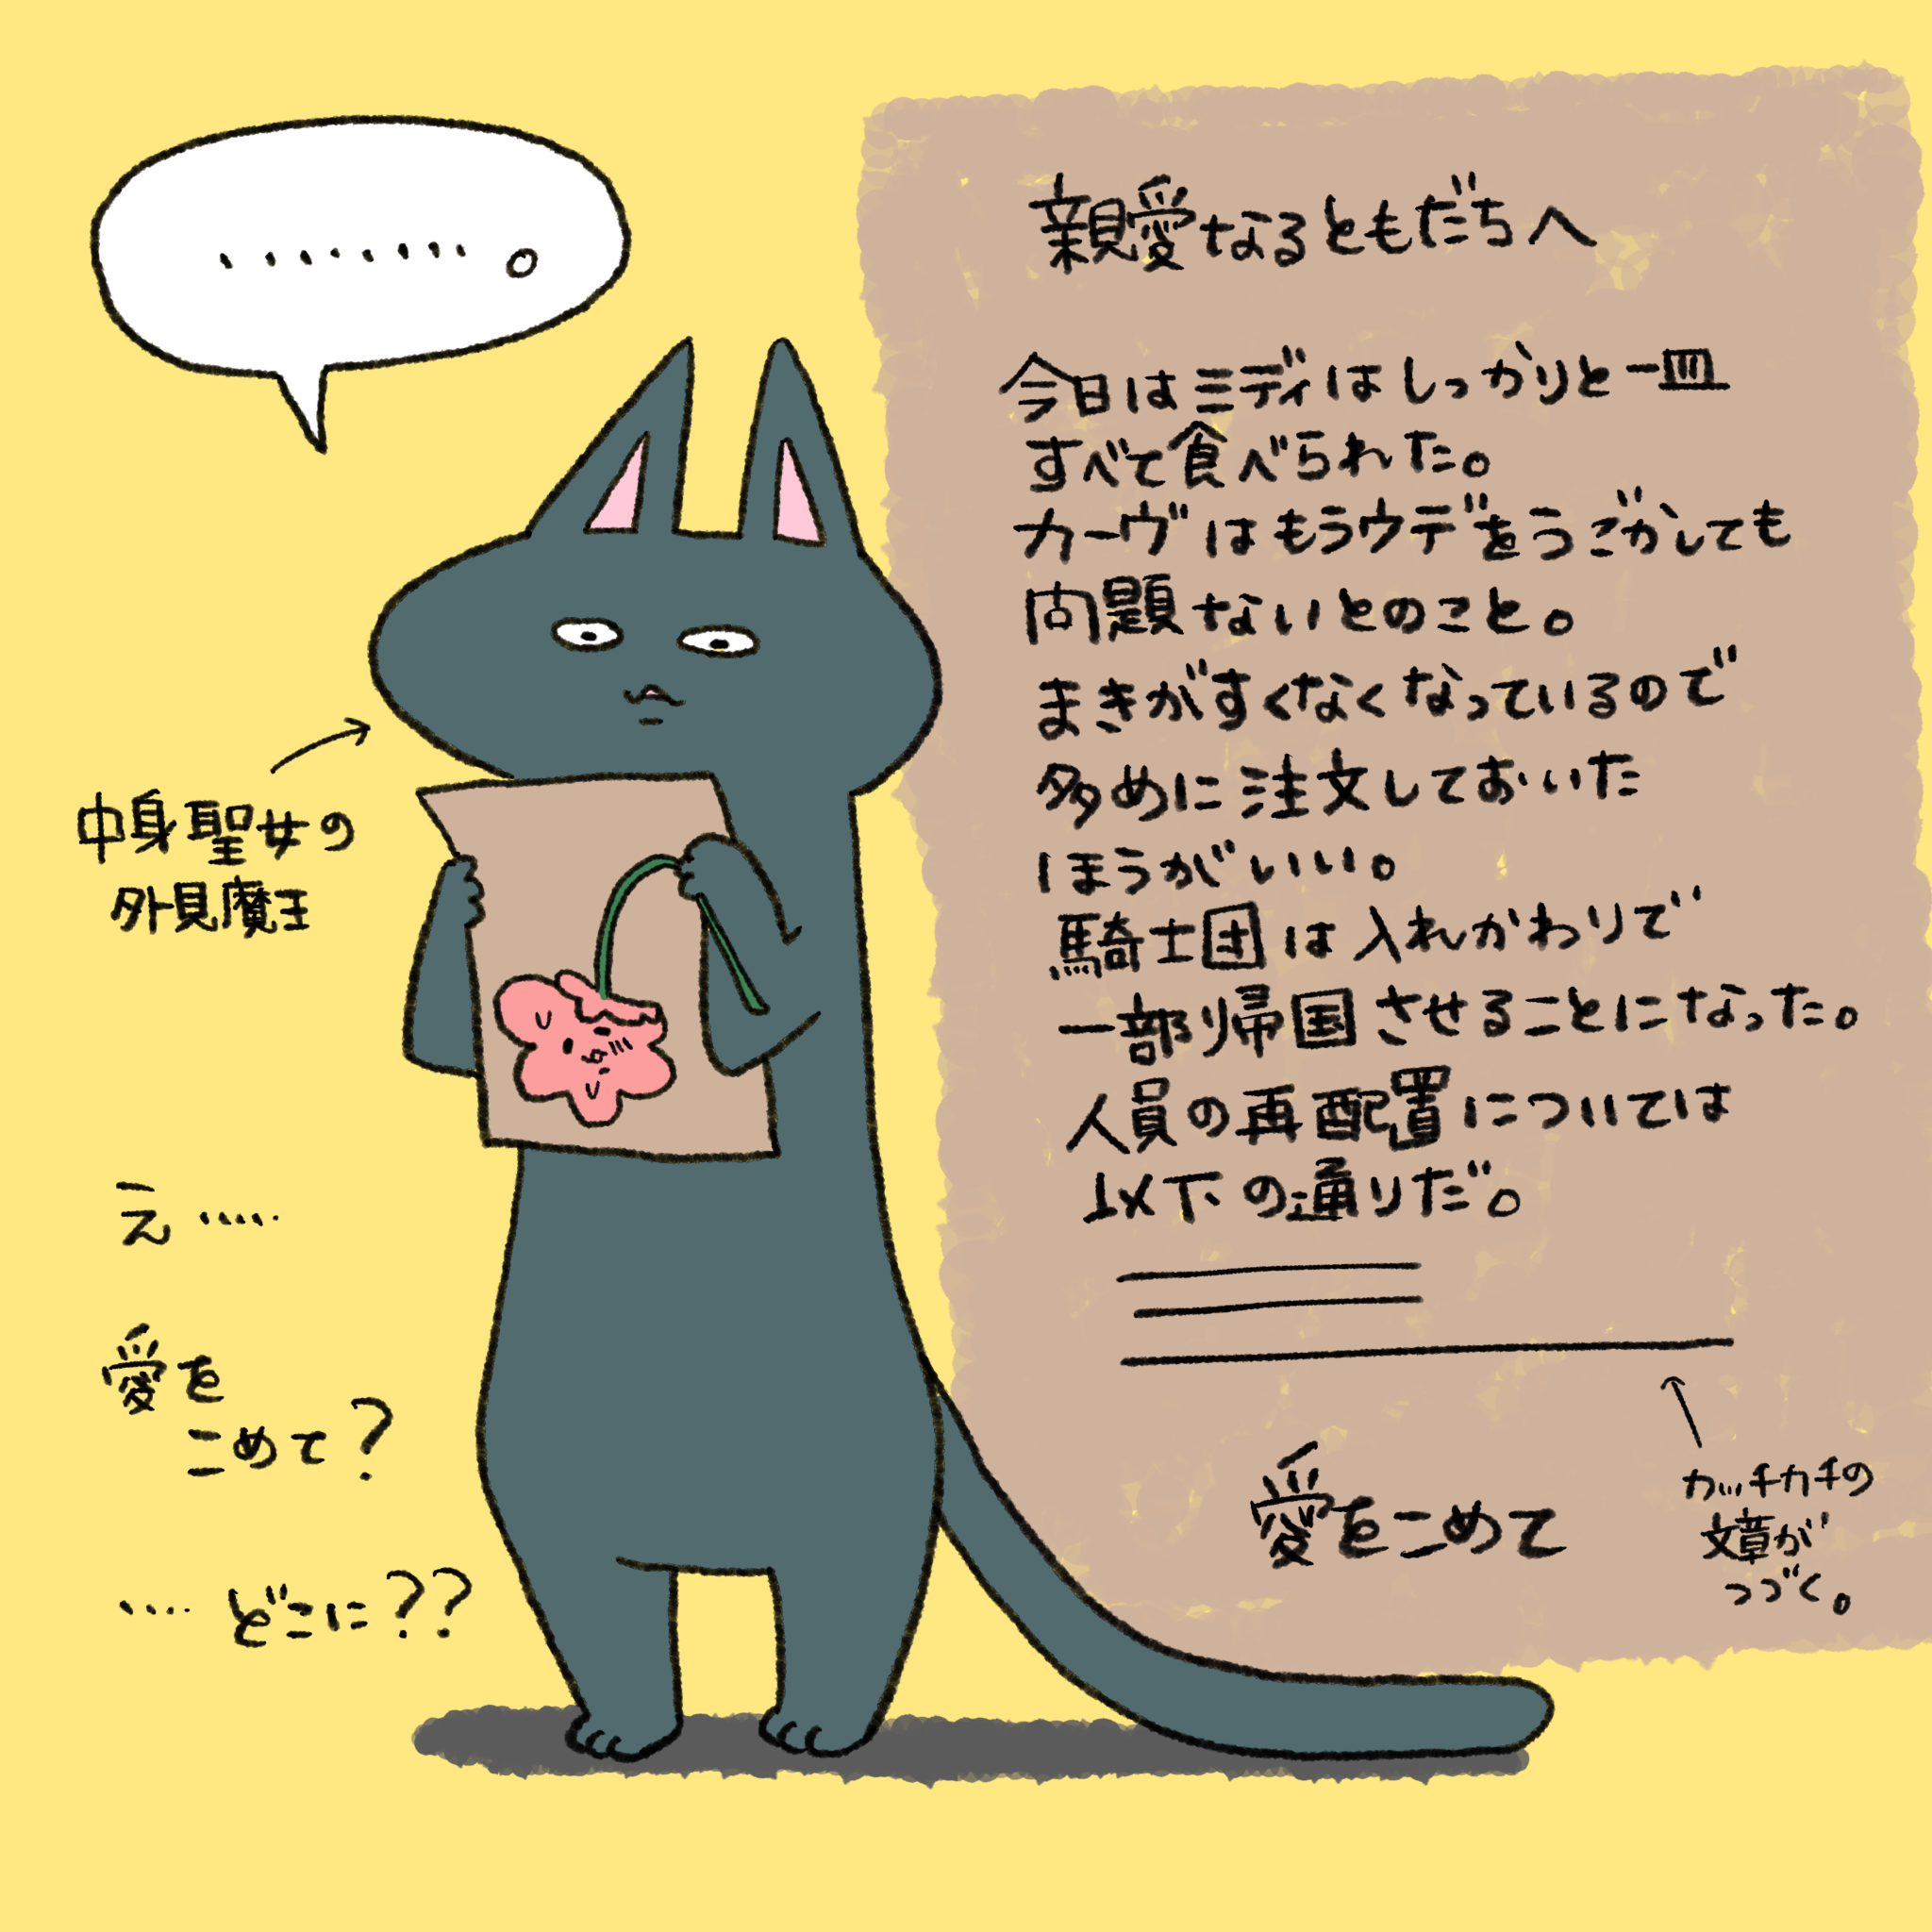 、、、、、、、、。
親愛なるともだちへ
今日はミディはしっかりと一皿
すべて食べられた。
カーヴはもうウデをうごかしても
問題ないとのこと。
まきがすくなくなっているので
多めに注文しておいた
ほうがいい。
騎士団は入れかわりで
一部帰国させることになった。
人員の再配置については
以下の通りだ。
愛をこめて
カッチカチの
文章が
つづく。
中身聖女の
外見魔王
え……
愛を
こめて?
…どこに??